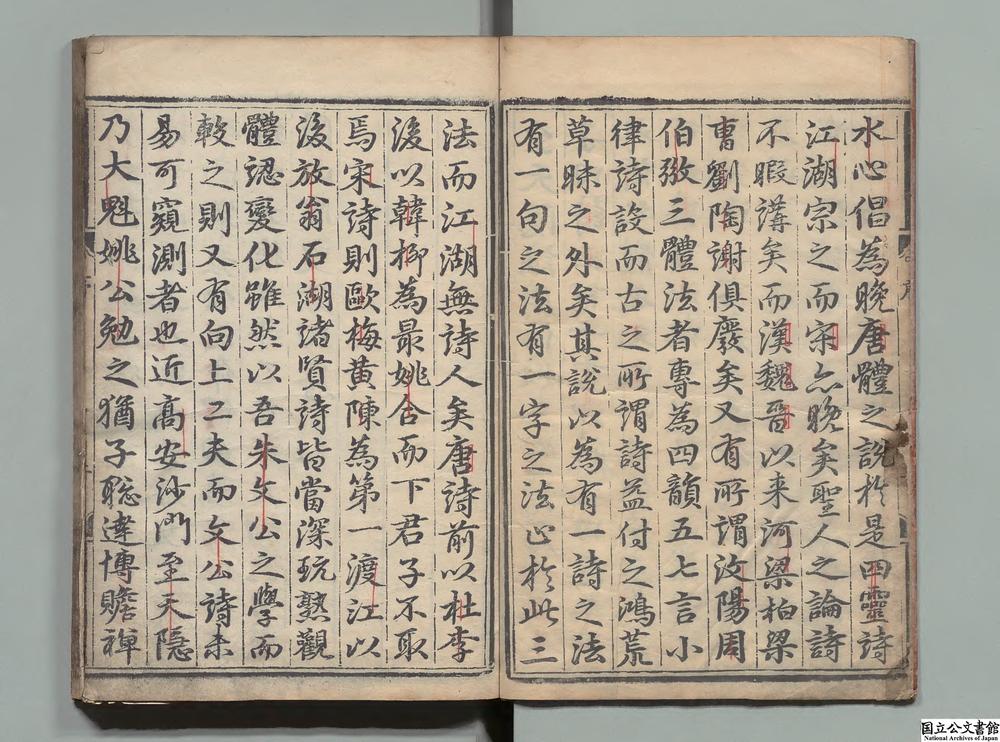 水心倡為晚唐體之說於是四靈詩
江湖宗之而宋亦晚矣聖人之論詩
不暇講矣而漢魏晉以来河梁柏梁
曹劉陶謝俱廢矣又有所謂汶陽周
伯弜三體法者專為四韻五七言小
律詩設而古之所謂詩益付之鴻荒
草昧之外矣其說以為有一詩之法
有一句之法有一字之法止於此三
法而江湖無詩人矣唐詩前以杜李
後以韓柳為最姚合而下君子不取
焉宋詩則歐梅黄陳為第一渡江以
後放翁石湖諸賢詩皆當深玩熟觀
體認變化雖然以吾朱文公之學而
較之則又有向上工夫而文公詩未
易可窺測者也近髙安沙門至天隱
乃大魁姚公勉之猶子聡達博贍禪
序
国立公文書館
National Archives of Japan